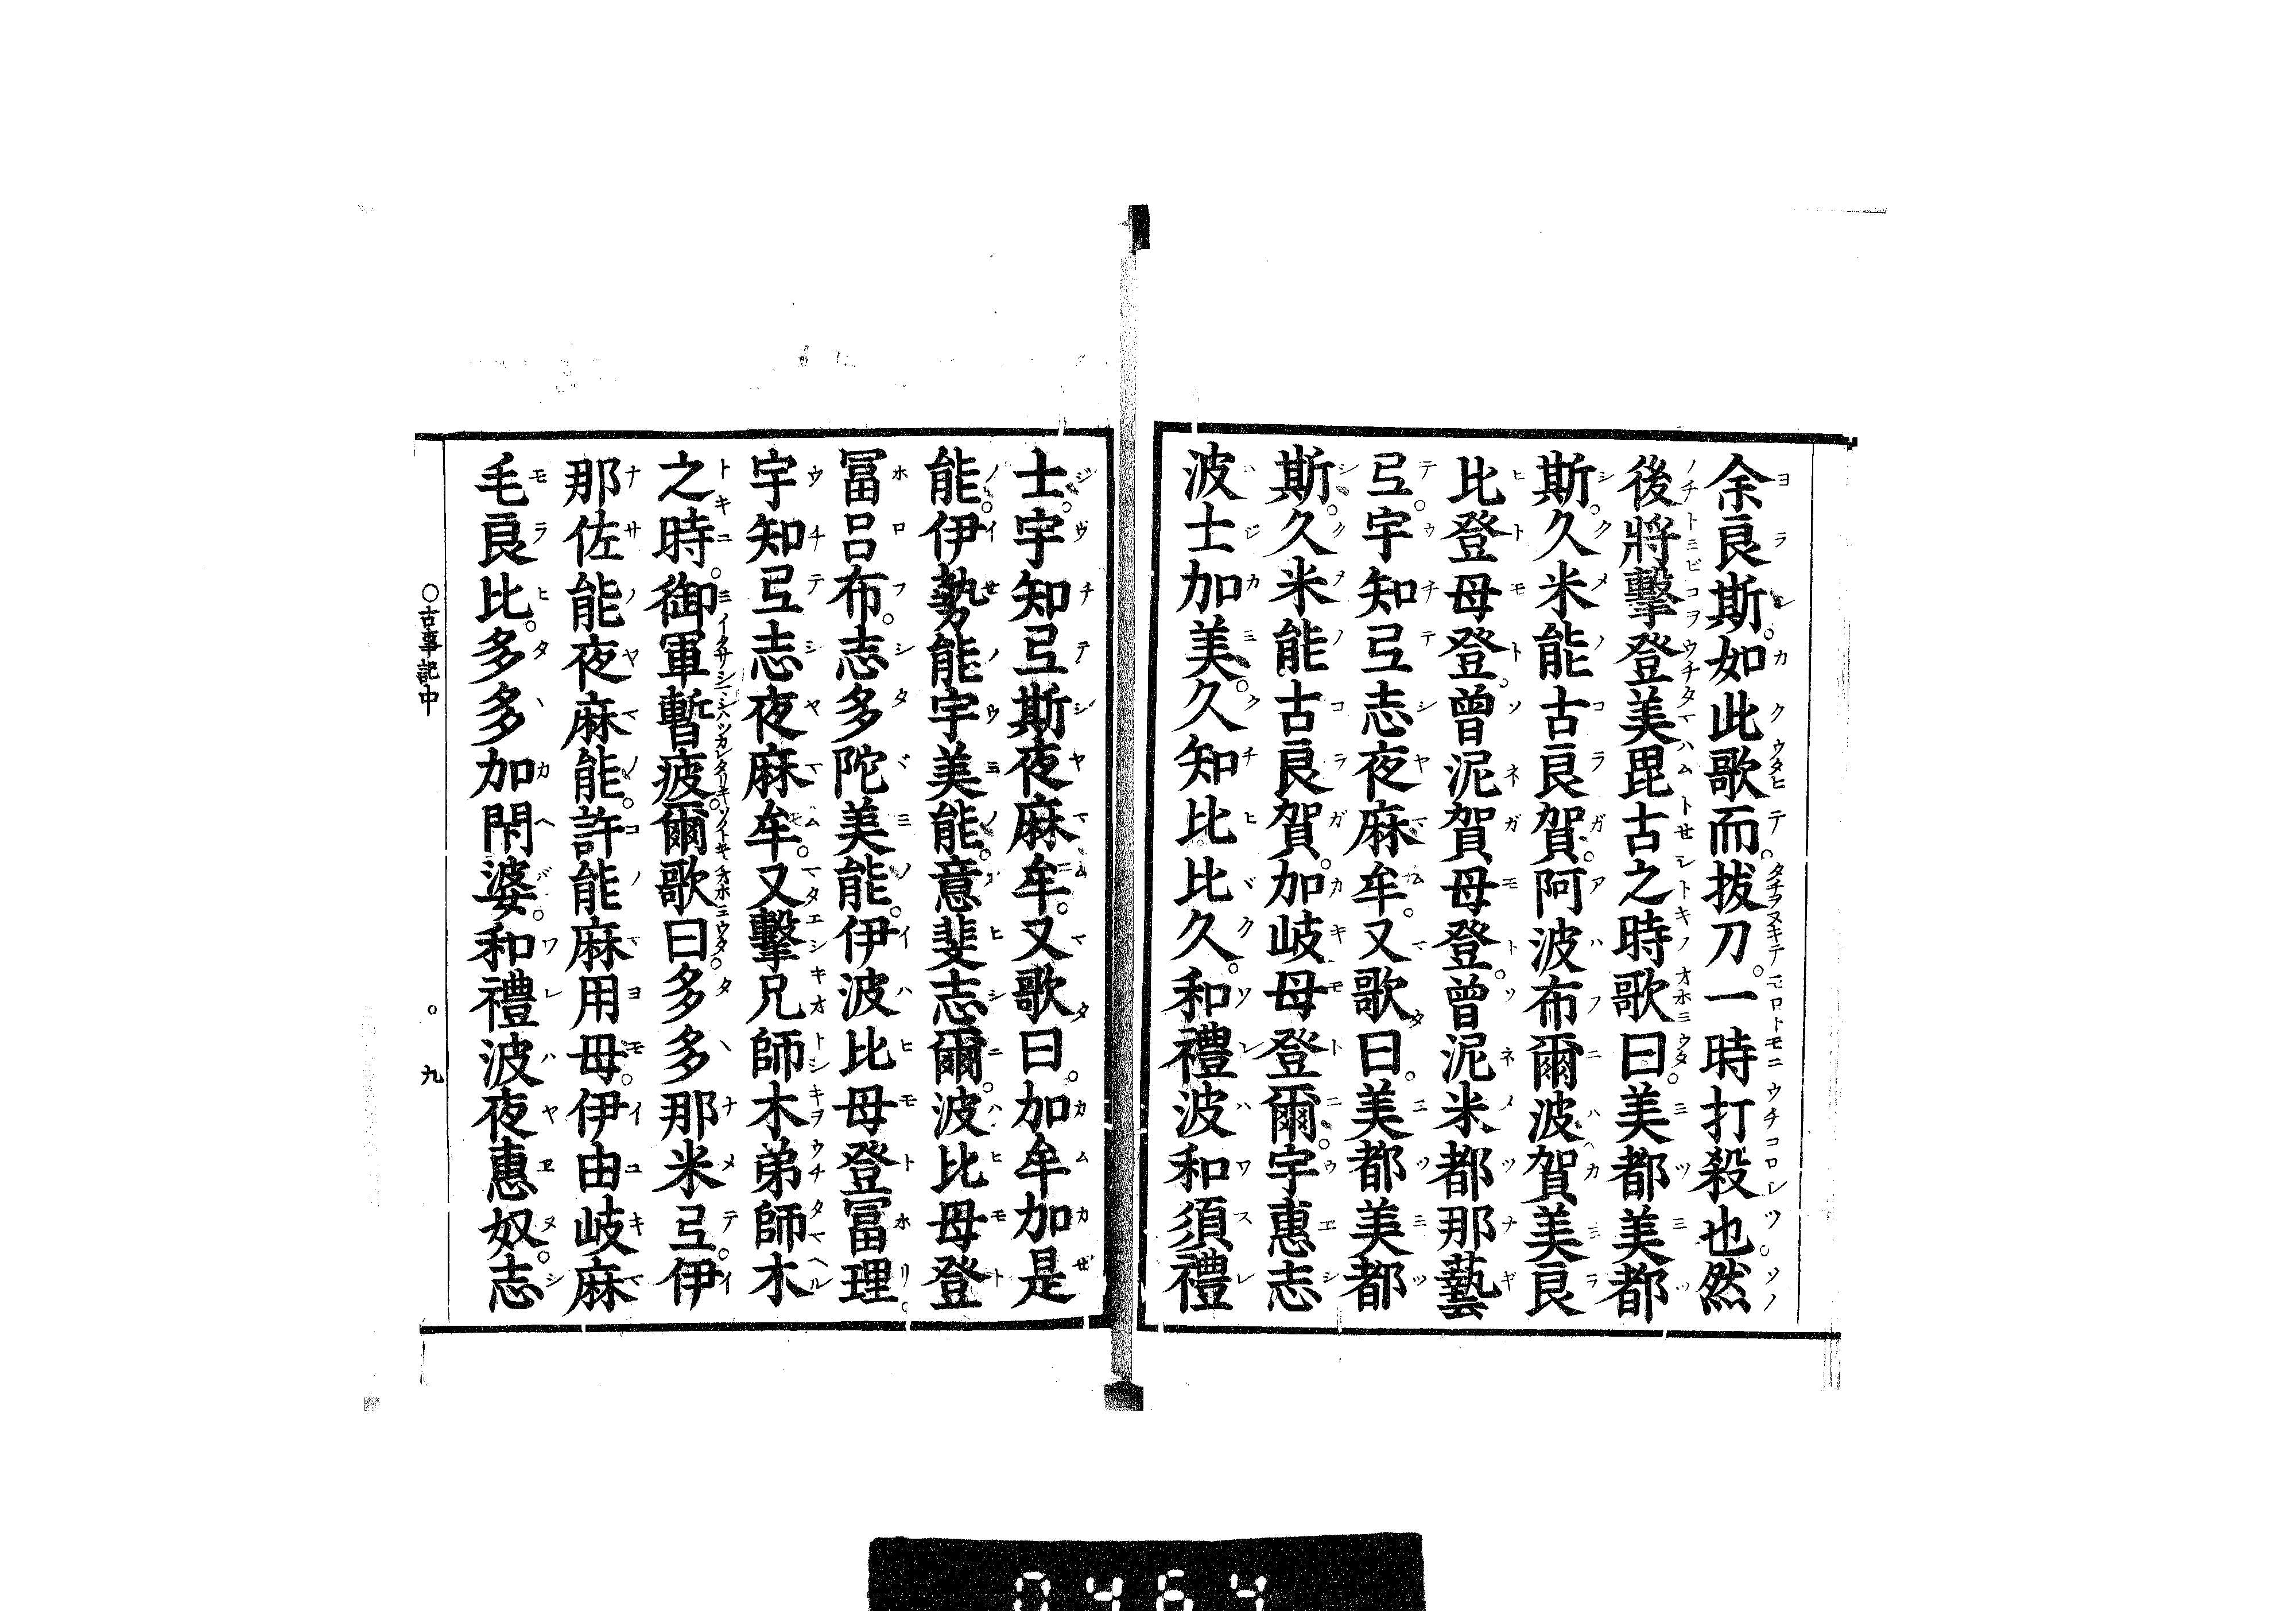 余良斯。如此歌而。拔刀。一時打殺也。然
後將擊登美毘古之時歌曰。美都美都
斯。久米能古良賀。阿波布爾波賀美良
比登母登。曾泥賀母登。曾泥米都那藝
弖。宇知弖志夜麻牟。又歌曰。美都美都
斯。久米能古良賀。加岐母登爾。宇惠志
波士加美。久知比比久。和禮波和須禮
士。宇知弖斯夜麻牟。又歌曰。加牟加是
能。伊勢能宇美能。意斐志爾。波比母登
冨呂布。志多陀美能。伊波比母登冨理。
宇知弖志夜麻牟。又擊兄師木弟師木
之時。御軍暫疲。爾歌曰。多多那米弖。伊
那佐能夜麻能。許能麻用母。伊由岐麻
毛良比。多多加閇婆。和禮波夜惠奴。志
○古事記中 。九
0464